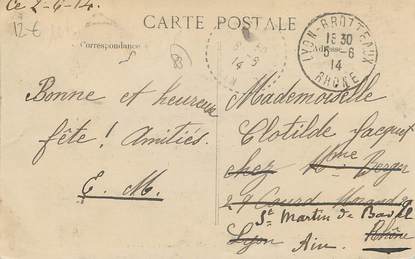 Ce 2-6-14.
12 €
CARTE POSTALE
Correspondance
Adresse
LYON-BROTTEAUX
15 30
5-6
14
RHÔNE
Bonne et heureuse
fête ! Amitiés.
E. M.
Mademoiselle
Clotilde Jacquet
chez Mme Berger
29 Cours Morand
St Martin de Bavel
Lyon Ain. Rhône